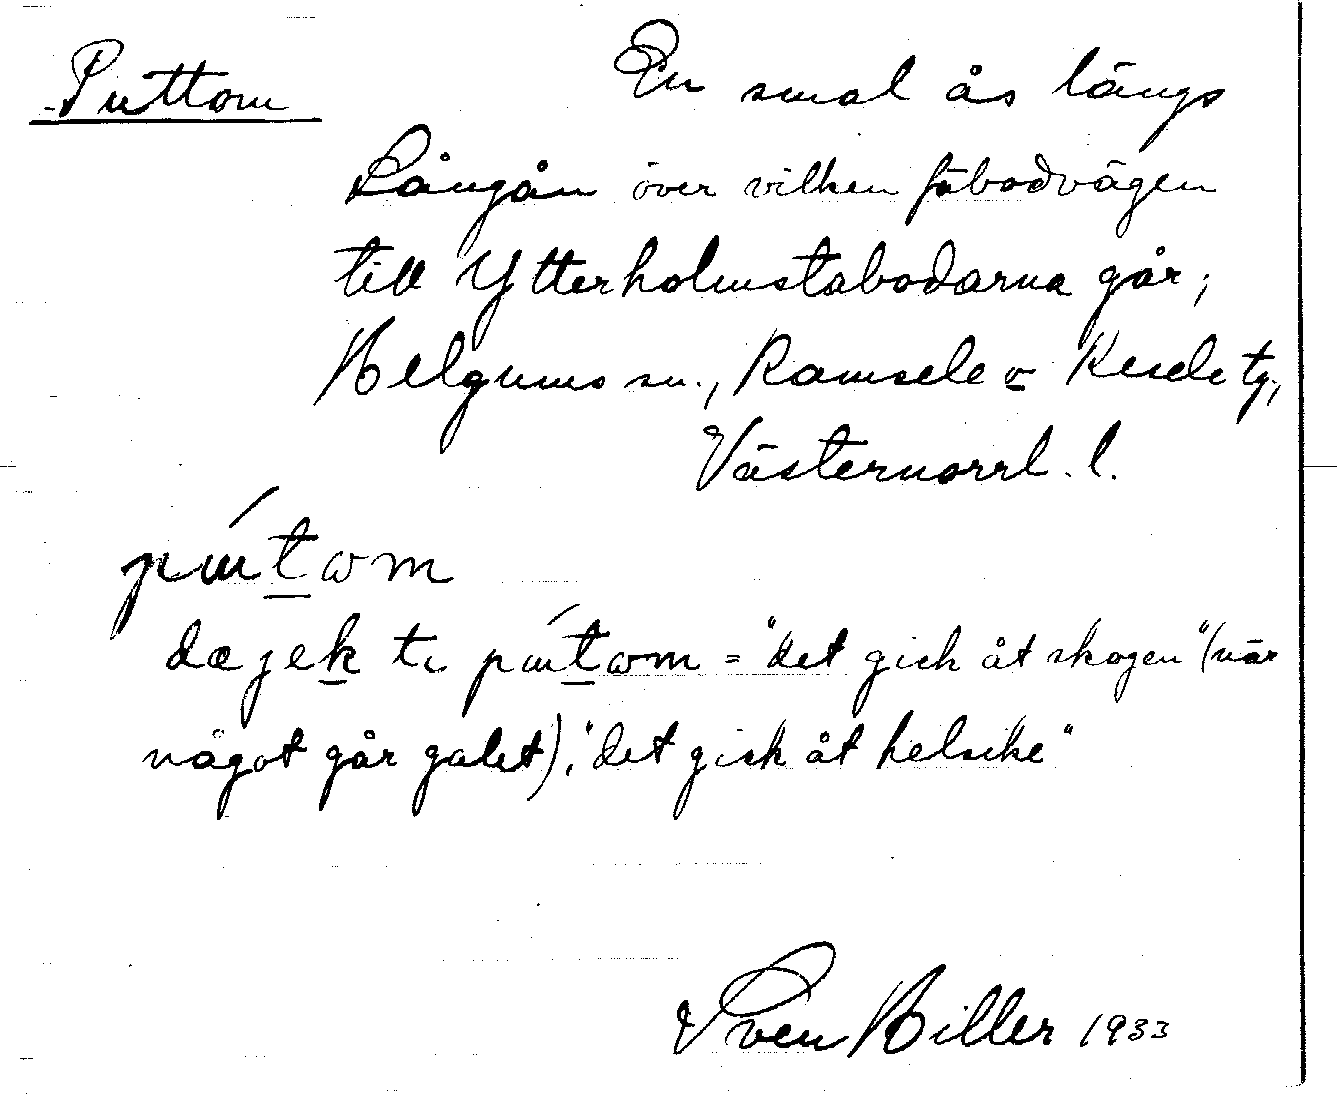 Puttom En smal ås längs
Långån över vilken fäbodvägen
till Ytterholmstabodarna går;
Helgums sn., Ramsele o Resele tg,
Västernorrl. l.
pɯt̲ωm
dæ jek̲ tı pɯt̲ωm = "det gick åt skogen" (när
något går galet), "det gick åt helsike"
Sven Hiller 1933